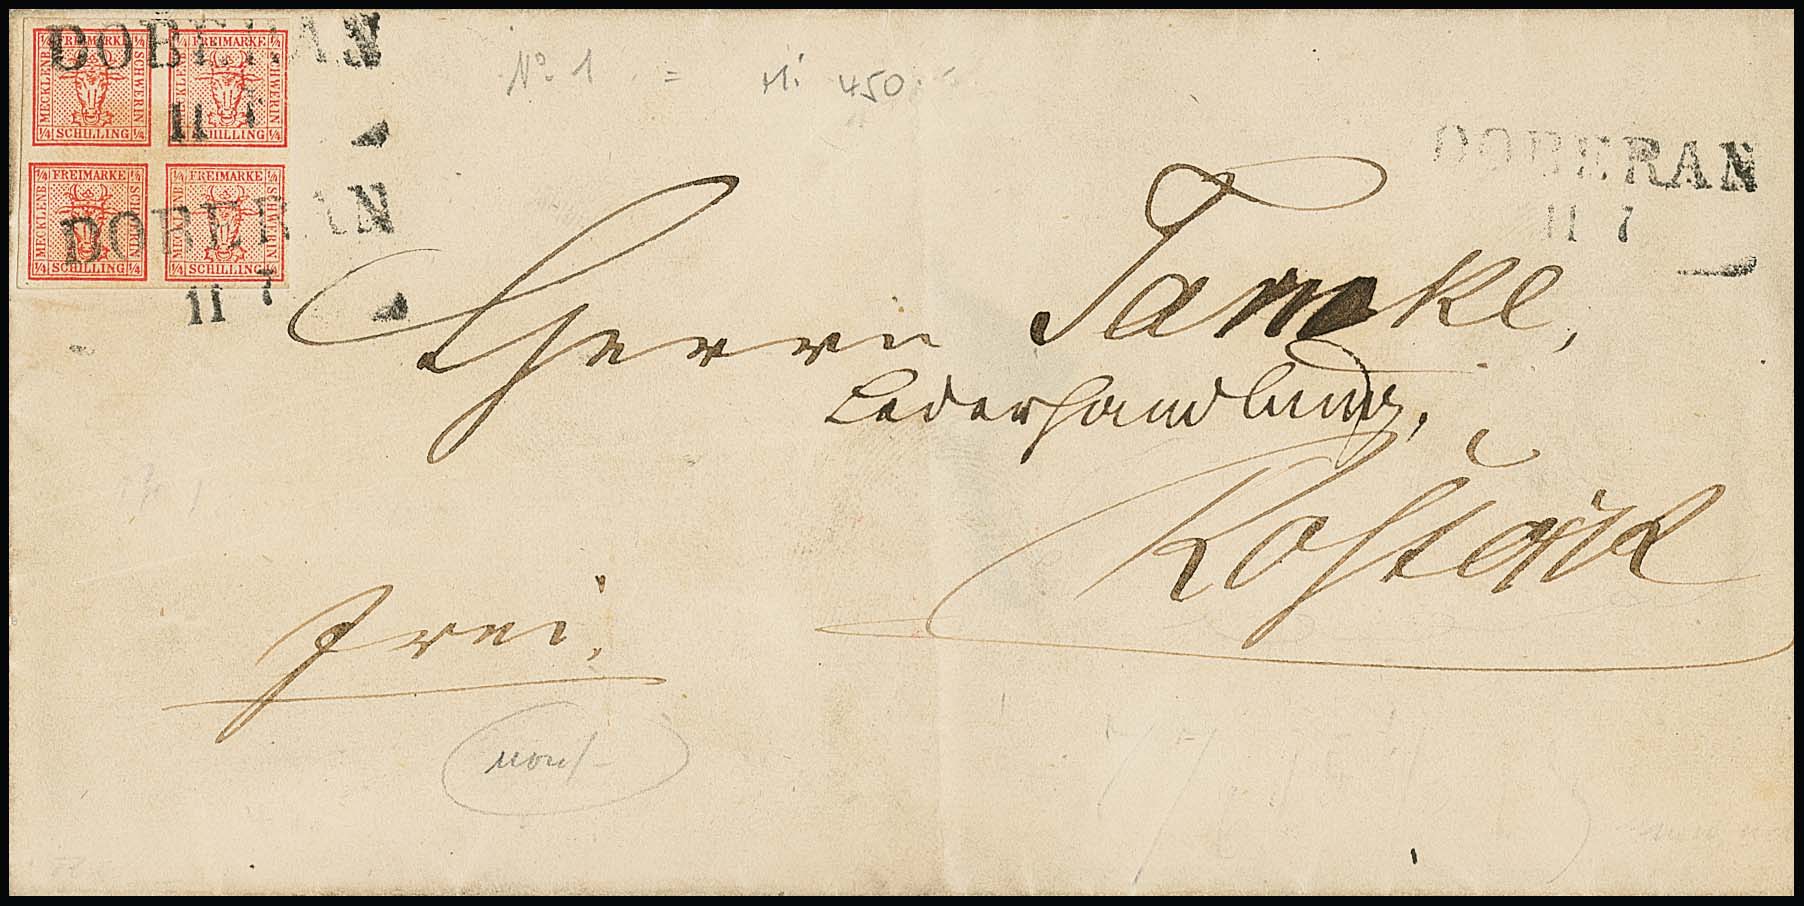 DOBERAN
11 7
¼ FREIMARKE ¼
MECKLENB
SCHWERIN
¼ SCHILLING ¼
¼ FREIMARKE ¼
MECKLENB
SCHWERIN
¼ SCHILLING ¼
DOBERAN
11 7
¼ FREIMARKE ¼
MECKLENB
SCHWERIN
¼ SCHILLING ¼
¼ FREIMARKE ¼
MECKLENB
SCHWERIN
¼ SCHILLING ¼
No 1 = Mi 450.-
DOBERAN
11 7
Herrn Tamke,
Lederhandlung,
Rostock
frei.